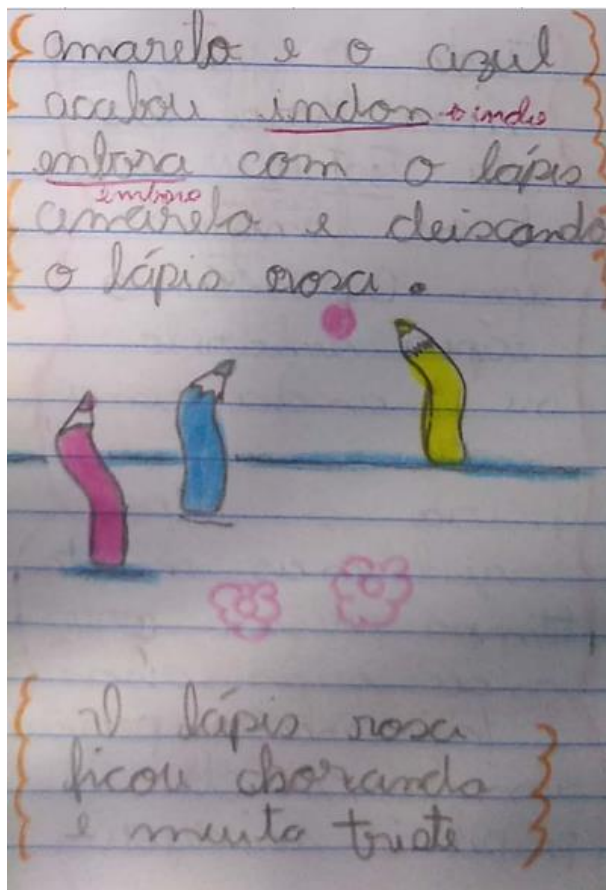 amarelo e o azul
acabou indon indo
embora com o lápis
embora
amarelo e deiscando
o lápis rosa.
O lápis rosa
ficou chorando
e muito triste